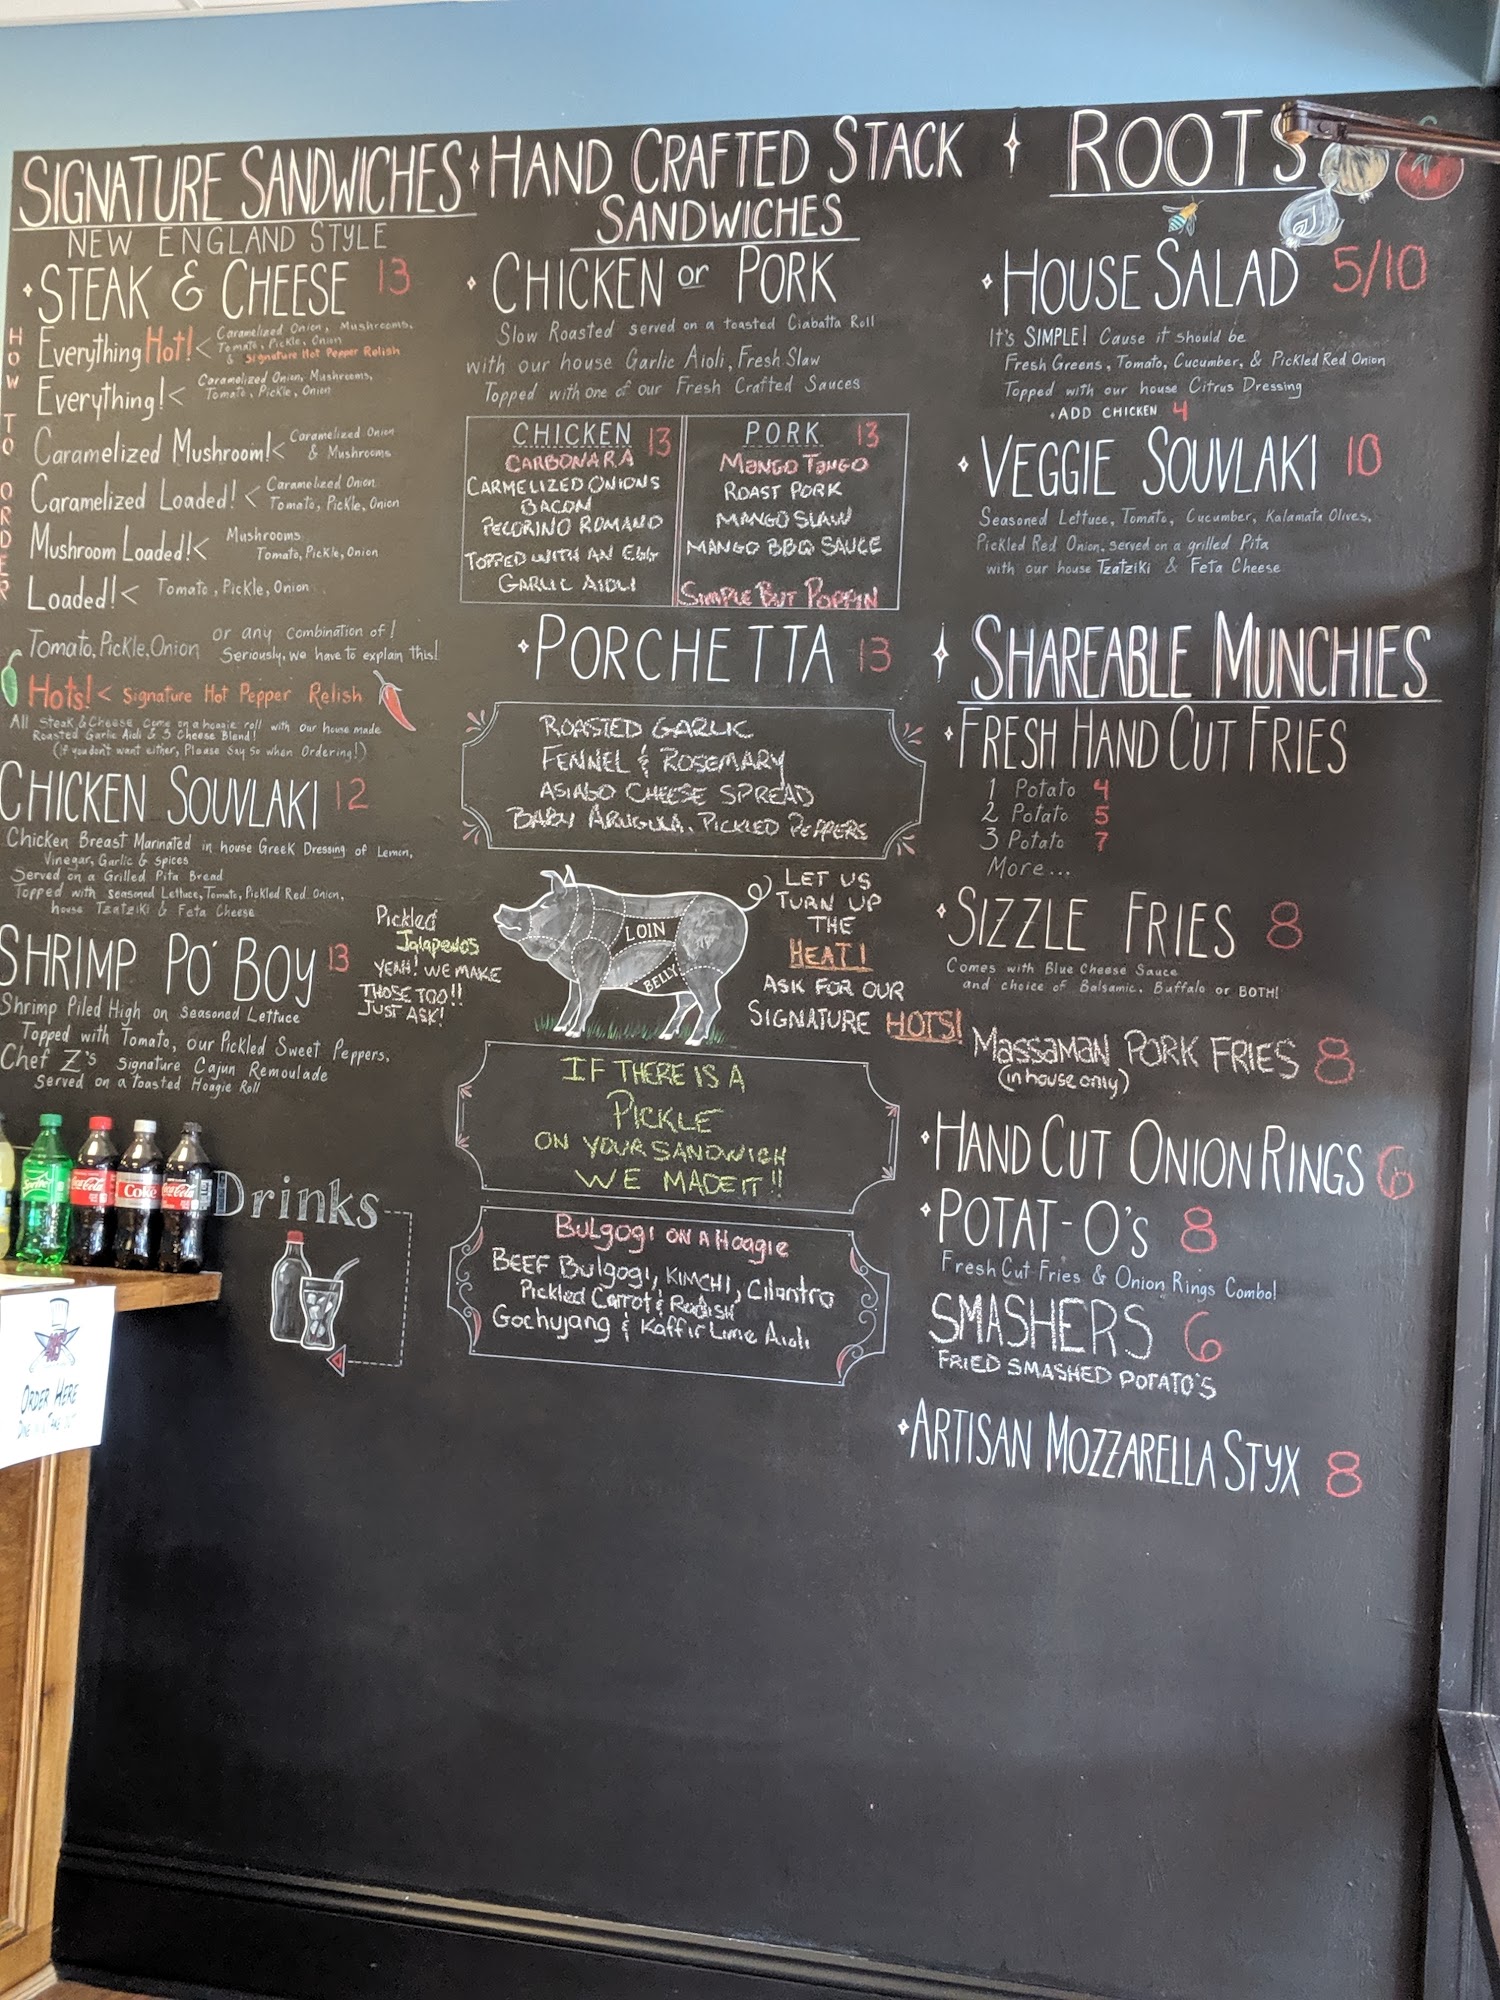 SIGNATURE SANDWICHES
NEW ENGLAND STYLE
STEAK & CHEESE 13
HOW TO ORDER
Everything Hot! < Caramelized Onion, Mushrooms,
Tomato, Pickle, Onion
& Signature Hot Pepper Relish
Everything! < Caramelized Onion, Mushrooms,
Tomato, Pickle, Onion
Caramelized Mushroom! < Caramelized Onion
& Mushrooms
Caramelized Loaded! < Caramelized Onion
Tomato, Pickle, Onion
Mushroom Loaded! < Mushrooms
Tomato, Pickle, Onion
Loaded! < Tomato, Pickle, Onion
Tomato, Pickle, Onion or any combination of!
Seriously, we have to explain this!
Hots! < Signature Hot Pepper Relish
All Steak & Cheese come on a hoagie roll with our house made
Roasted Garlic Aioli & 3 Cheese Blend!
(If you don't want either, Please Say So when Ordering!)
CHICKEN SOUVLAKI 12
Chicken Breast Marinated in house Greek Dressing of Lemon,
Vinegar, Garlic & Spices
Served on a Grilled Pita Bread
Topped with seasoned Lettuce, Tomato, Pickled Red Onion,
house Tzatziki & Feta Cheese
SHRIMP PO' BOY 13
Shrimp Piled High on Seasoned Lettuce
Topped with Tomato, our Pickled Sweet Peppers,
Chef Z's Signature Cajun Remoulade
Served on a Toasted Hoagie Roll
Pickled
Jalapenos
YEAH! WE MAKE
THOSE TOO!!
JUST ASK!
Drinks
Sprite
Coca-Cola
Coke
Coca-Cola
ORDER HERE
HAND CRAFTED STACK
SANDWICHES
CHICKEN or PORK
Slow Roasted served on a toasted Ciabatta Roll
with our house Garlic Aioli, Fresh Slaw
Topped with one of our Fresh Crafted Sauces
CHICKEN 13
CARBONARA
CARMELIZED ONIONS
BACON
PECORINO ROMANO
TOPPED WITH AN EGG
GARLIC AIOLI
PORK 13
MANGO TANGO
ROAST PORK
MANGO SLAW
MANGO BBQ SAUCE
SIMPLE BUT POPPIN
PORCHETTA 13
ROASTED GARLIC
FENNEL & ROSEMARY
ASIAGO CHEESE SPREAD
BABY ARUGULA, PICKLED PEPPERS
LOIN
BELLY
LET US
TURN UP
THE
HEAT!
ASK FOR OUR
SIGNATURE HOTS!
IF THERE IS A
PICKLE
ON YOUR SANDWICH
WE MADE IT!!
BULGOGI ON A HOAGIE
BEEF Bulgogi, KIMCHI, Cilantro
Pickled Carrot & Radish
Gochujang & Kaffir Lime Aioli
ROOTS
HOUSE SALAD 5/10
It's SIMPLE! Cause it should be
Fresh Greens, Tomato, Cucumber, & Pickled Red Onion
Topped with our house Citrus Dressing
+ ADD CHICKEN 4
VEGGIE SOUVLAKI 10
Seasoned Lettuce, Tomato, Cucumber, Kalamata Olives,
Pickled Red Onion, served on a grilled Pita
with our house Tzatziki & Feta Cheese
SHAREABLE MUNCHIES
FRESH HAND CUT FRIES
1 Potato 4
2 Potato 5
3 Potato 7
More...
SIZZLE FRIES 8
Comes with Blue Cheese Sauce
and choice of Balsamic, Buffalo or BOTH!
MASSAMAN PORK FRIES 8
(in house only)
HAND CUT ONION RINGS 6
POTAT-O'S 8
Fresh Cut Fries & Onion Rings Combo!
SMASHERS 6
FRIED SMASHED POTATO'S
ARTISAN MOZZARELLA STYX 8